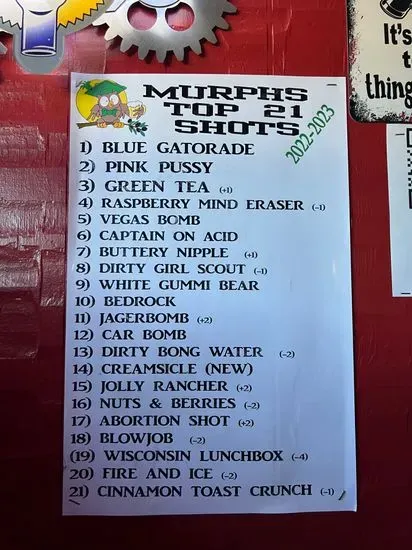 It's
t
thing
MURPHS
TOP 21
SHOTS
2022-2023
1) BLUE GATORADE
2) PINK PUSSY
3) GREEN TEA (+1)
4) RASPBERRY MIND ERASER (-1)
5) VEGAS BOMB
6) CAPTAIN ON ACID
7) BUTTERY NIPPLE (+1)
8) DIRTY GIRL SCOUT (-1)
9) WHITE GUMMI BEAR
10) BEDROCK
11) JAGERBOMB (+2)
12) CAR BOMB
13) DIRTY BONG WATER (-2)
14) CREAMSICLE (NEW)
15) JOLLY RANCHER (+2)
16) NUTS & BERRIES (-2)
17) ABORTION SHOT (+2)
18) BLOWJOB (-2)
(19) WISCONSIN LUNCHBOX (-4)
20) FIRE AND ICE (-2)
21) CINNAMON TOAST CRUNCH (-1)